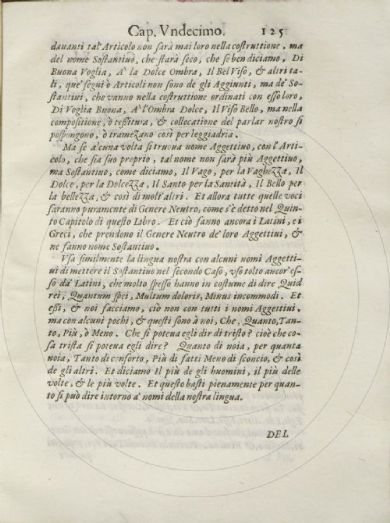 Cap. Vndecimo. 125
dauanti tal' Articolo non sarà mai loro nella costruttione, ma
del nome Sostantiuo, che starà seco, che se ben diciamo, Di
Buona Voglia, A' la Dolce Ombra, Il Bel Viso, & altri ta-
li, que' segni ò Articoli non sono de gli Aggiunti, ma de' So-
stantiui, che vanno nella costruttione ordinati con esso loro,
Di Voglia Buona, A' l'Ombra Dolce, Il Viso Bello, ma nella
compositione, ò testitura, & collocatione del parlar nostro si
pospongono, ò tramezano così per leggiadria.
Ma se à una volta si truoua nome Aggettiuo, con l'Arti-
colo, che sia suo proprio, tal nome non sarà più Aggettiuo,
ma Sostantiuo, come diciamo, Il Vago, per la Vaghezza, Il
Dolce, per la Dolcezza, Il Santo per la Santità, Il Bello per
la bellezza, & così di molt'altri. Et allora tutte quelle voci
saranno puramente di Genere Neutro, come s'è detto nel Quin-
to Capitolo di questo Libro. Et ciò fanno ancora i Latini, e i
Greci, che prendono il Genere Neutro de' loro Aggettiui, &
ne fanno nome Sostantiuo.
Vsa similmente la lingua nostra con alcuni nomi Aggetti-
ui di mettere il Sostantiuo nel secondo Caso, vso tolto ancor'es-
so da' Latini, che molto spesso hanno in costume di dire Quid
rei, Quantum spei, Multum doloris, Minus incommodi. Et
essi, & noi facciamo, ciò non con tutti i nomi Aggettiui,
ma con alcuni pochi, & questi sono à noi, Che, Quanto, Tan-
to, Più, ò Meno. Che si poteua egli dir di tristo? cioè che co-
sa trista si poteua egli dire? Quanto di noia, per quanta
noia, Tanto di conforto, Più di fatti Meno di sconcio, & così
de gli altri. Et diciamo Il più de gli huomini, il più delle
volte, & le più volte. Et questo basti pienamente per quan-
to si può dire intorno a' nomi della nostra lingua.
DEL